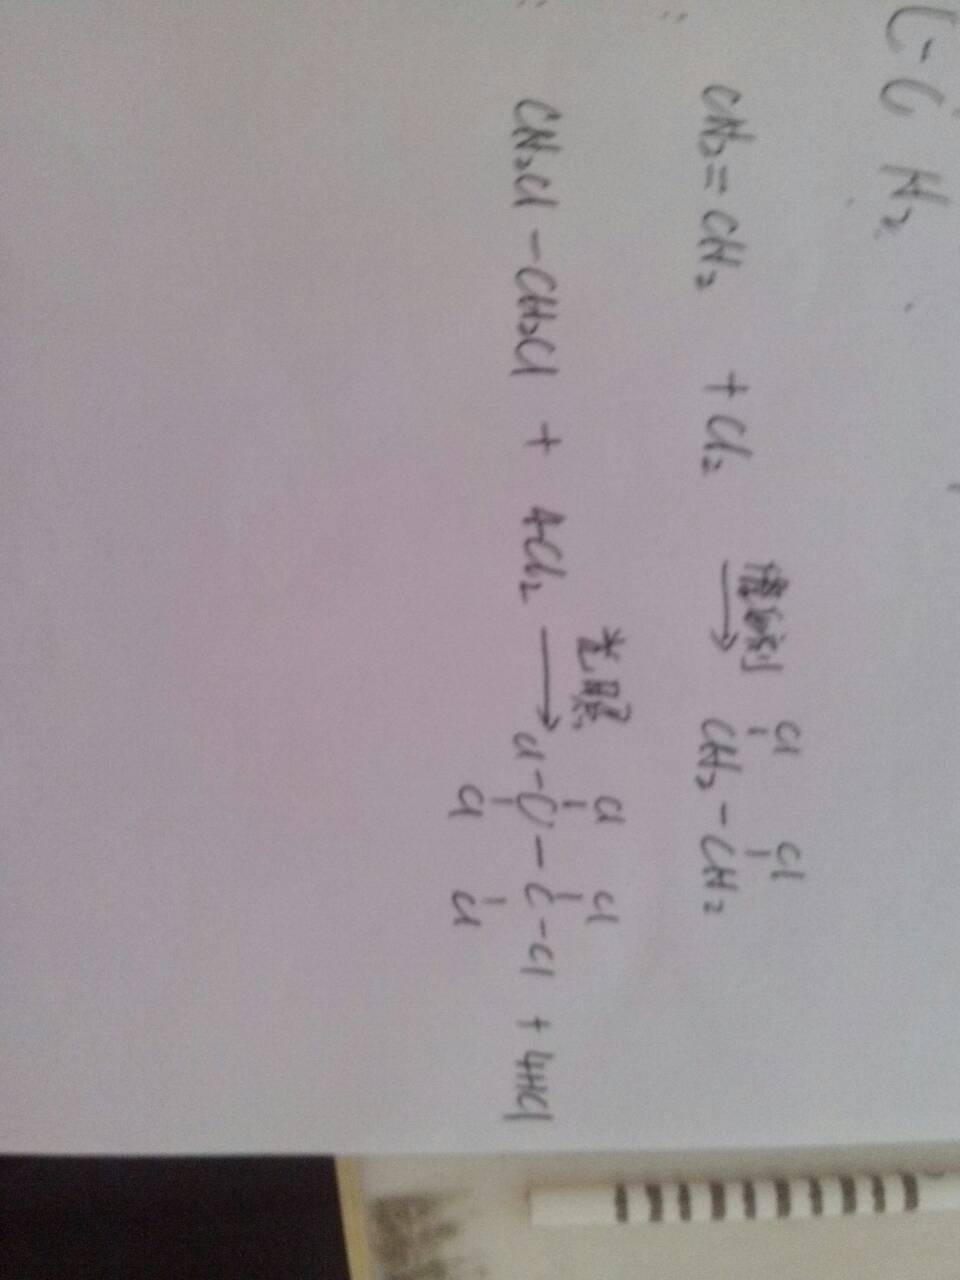 C-C H₂
CH₂=CH₂ + Cl₂ 催化剂→ CH₂-CH₂
Cl Cl
CH₂Cl-CH₂Cl + 4Cl₂ 光照→ Cl-C-C-Cl + 4HCl
Cl Cl
Cl Cl